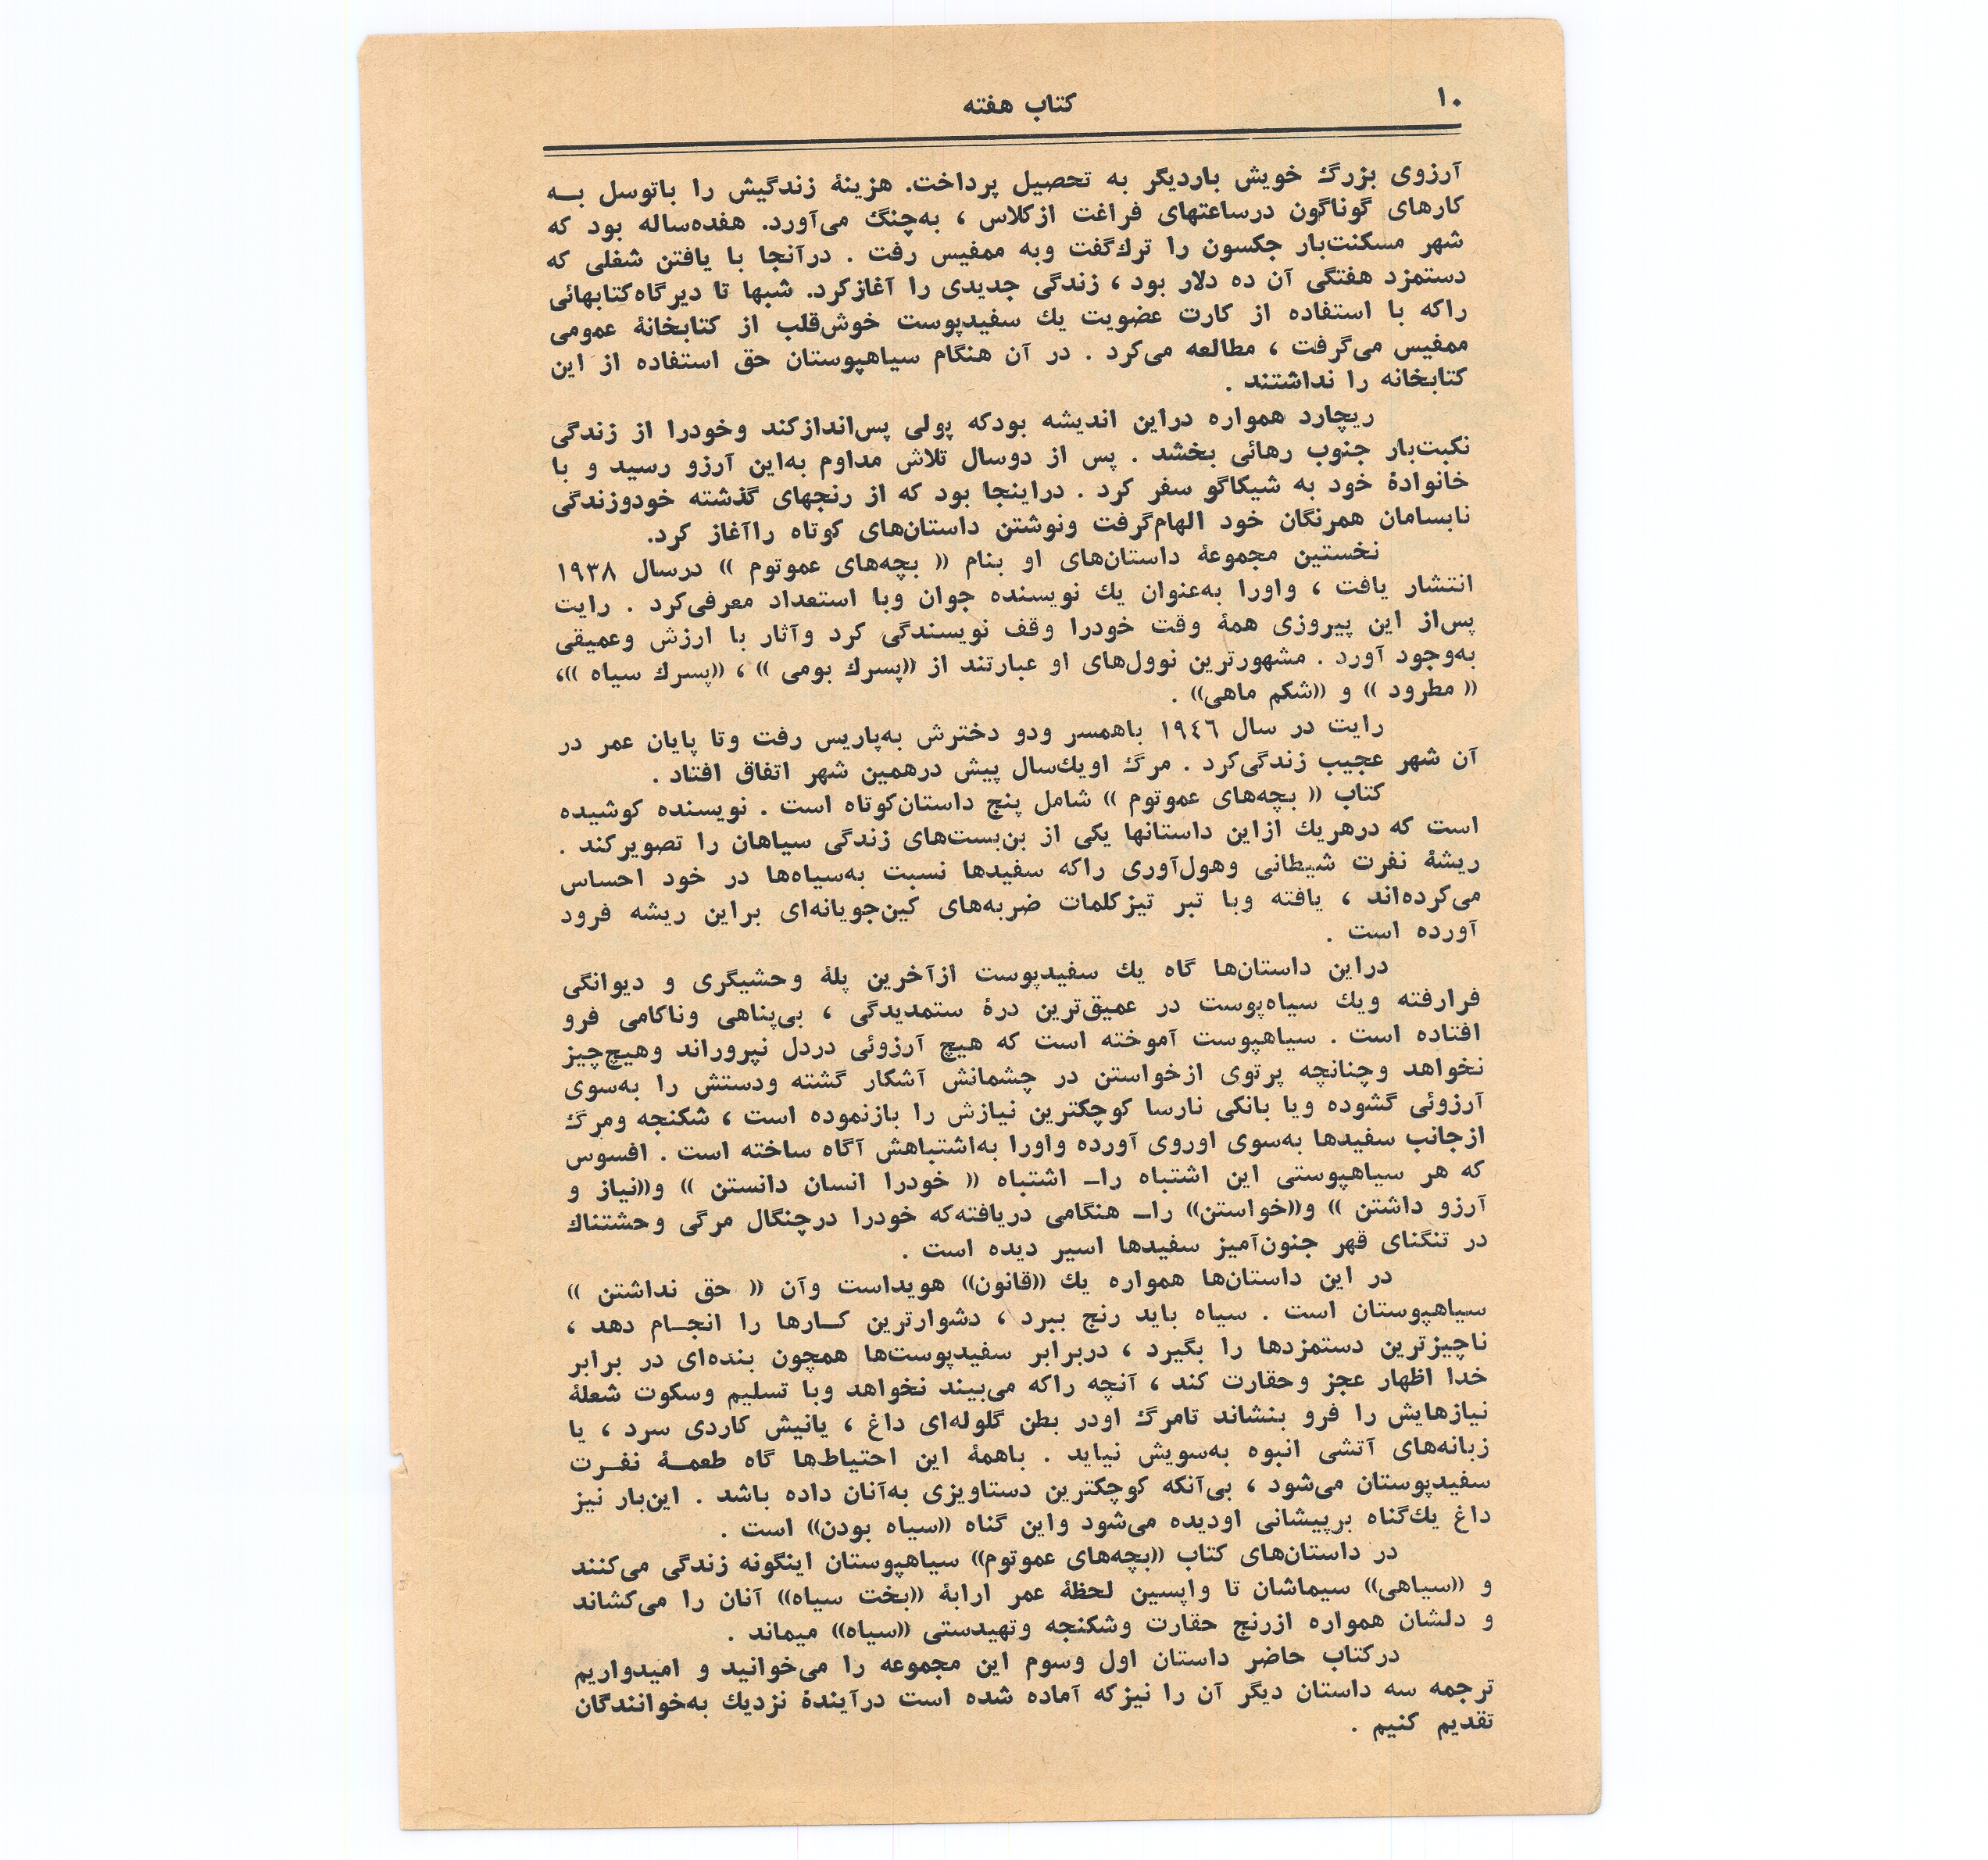 ۱۰
کتاب هفته
آرزوی بزرگ خویش باردیگر به تحصیل پرداخت. هزینهٔ زندگیش را باتوسل بـه
کارهای گوناگون درساعتهای فراغت ازکلاس ، به‌چنگ می‌آورد. هفده‌ساله بود که
شهر مسکنت‌بار جکسون را ترك‌گفت وبه ممفیس رفت . درآنجا با یافتن شغلی که
دستمزد هفتگی آن ده دلار بود ، زندگی جدیدی را آغازکرد. شبها تا دیرگاه‌کتابهائی
راکه با استفاده از کارت عضویت یك سفیدپوست خوش‌قلب از کتابخانهٔ عمومی
ممفیس می‌گرفت ، مطالعه می‌کرد . در آن هنگام سیاهپوستان حق استفاده از این
کتابخانه را نداشتند .
ریچارد همواره دراین اندیشه بودکه پولی پس‌اندازکند وخودرا از زندگی
نکبت‌بار جنوب رهائی بخشد . پس از دوسال تلاش مداوم به‌این آرزو رسید و با
خانوادهٔ خود به شیکاگو سفر کرد . دراینجا بود که از رنجهای گذشته خودوزندگی
نابسامان همرنگان خود الهام‌گرفت ونوشتن داستان‌های کوتاه راآغاز کرد.
نخستین مجموعهٔ داستان‌های او بنام «بچه‌های عموتوم » درسال ۱۹۳۸
انتشار یافت ، واورا به‌عنوان یك نویسنده جوان وبا استعداد معرفی‌کرد . رایت
پس‌از این پیروزی همهٔ وقت خودرا وقف نویسندگی کرد وآثار با ارزش وعمیقی
به‌وجود آورد . مشهورترین نوول‌های او عبارتند از «پسرك بومی » ، «پسرك سیاه »،
« مطرود » و «شکم ماهی» .
رایت در سال ۱۹٤٦ باهمسر ودو دخترش به‌پاریس رفت وتا پایان عمر در
آن شهر عجیب زندگی‌کرد . مرگ اویك‌سال پیش درهمین شهر اتفاق افتاد .
کتاب « بچه‌های عموتوم » شامل پنج داستان‌کوتاه است . نویسنده کوشیده
است که درهریك ازاین داستانها یکی از بن‌بست‌های زندگی سیاهان را تصویرکند .
ریشهٔ نفرت شیطانی وهول‌آوری راکه سفیدها نسبت به‌سیاه‌ها در خود احساس
می‌کرده‌اند ، یافته وبا تبر تیزکلمات ضربه‌های کین‌جویانه‌ای براین ریشه فرود
آورده است .
دراین داستان‌ها گاه یك سفیدپوست ازآخرین پلهٔ وحشیگری و دیوانگی
فرارفته ویك سیاه‌پوست در عمیق‌ترین درهٔ ستمدیدگی ، بی‌پناهی وناکامی فرو
افتاده است . سیاهپوست آموخته است که هیچ آرزوئی دردل نپروراند وهیچ‌چیز
نخواهد وچنانچه پرتوی ازخواستن در چشمانش آشکار گشته ودستش را به‌سوی
آرزوئی گشوده ویا بانکی نارسا کوچکترین نیازش را بازنموده است ، شکنجه ومرگ
ازجانب سفیدها به‌سوی اوروی آورده واورا به‌اشتباهش آگاه ساخته است . افسوس
که هر سیاهپوستی این اشتباه را– اشتباه « خودرا انسان دانستن » و«نیاز و
آرزو داشتن » و«خواستن» را– هنگامی دریافته‌که خودرا درچنگال مرگی وحشتناك
در تنگنای قهر جنون‌آمیز سفیدها اسیر دیده است .
در این داستان‌ها همواره یك «قانون» هویداست وآن « حق نداشتن »
سیاهپوستان است . سیاه باید رنج ببرد ، دشوارترین کـارها را انجـام دهد ،
ناچیزترین دستمزدها را بگیرد ، دربرابر سفیدپوست‌ها همچون بنده‌ای در برابر
خدا اظهار عجز وحقارت کند ، آنچه راکه می‌بیند نخواهد وبا تسلیم وسکوت شعلهٔ
نیازهایش را فرو بنشاند تامرگ اودر بطن گلوله‌ای داغ ، یانیش کاردی سرد ، یا
زبانه‌های آتشی انبوه به‌سویش نیاید . باهمهٔ این احتیاط‌ها گاه طعمـهٔ نفـرت
سفیدپوستان می‌شود ، بی‌آنکه کوچکترین دستاویزی به‌آنان داده باشد . این‌بار نیز
داغ یك‌گناه برپیشانی اودیده می‌شود واین گناه «سیاه بودن» است .
در داستان‌های کتاب «بچه‌های عموتوم» سیاهپوستان اینگونه زندگی می‌کنند
و «سیاهی» سیماشان تا واپسین لحظهٔ عمر ارابهٔ «بخت سیاه» آنان را می‌کشاند
و دلشان همواره ازرنج حقارت وشکنجه وتهیدستی «سیاه» میماند .
درکتاب حاضر داستان اول وسوم این مجموعه را می‌خوانید و امیدواریم
ترجمه سه داستان دیگر آن را نیزکه آماده شده است درآیندهٔ نزدیك به‌خوانندگان
تقدیم کنیم .